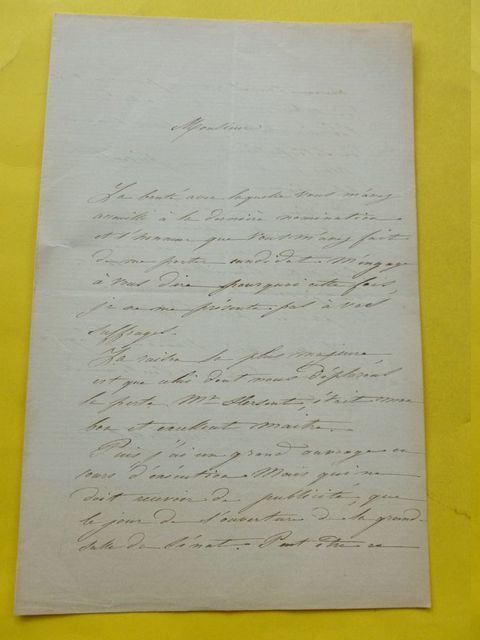 Monsieur
La bonté avec laquelle vous m'avez
accueilli à la dernière nomination
et l'honneur que vous m'avez fait
de me porter candidat M'engage
à vous dire pourquoi cette fois,
je ne me présente pas à vos
suffrages.
La raison la plus majeure
est que celui dont nous Déplorons
la perte Mr Hersent, était mon
bon et excellent maitre.
Puis j'ai un grand ouvrage en
cours d'exécution Mais qui ne
doit recevoir de publicité, que
le jour de l'ouverture de la grande
salle du Sénat. Peut être ce